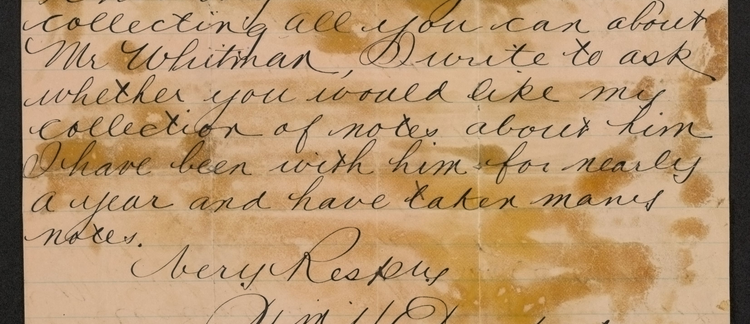 collecting all you can about
Mr Whitman, I write to ask
whether you would like my
collection of notes about him
I have been with him for nearly
a year and have taken many
notes.
Very Respy